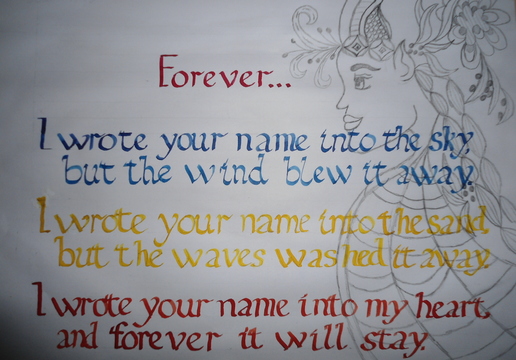 Forever...
I wrote your name into the sky,
but the wind blew it away.
I wrote your name into the sand,
but the waves washed it away.
I wrote your name into my heart,
and forever it will stay.